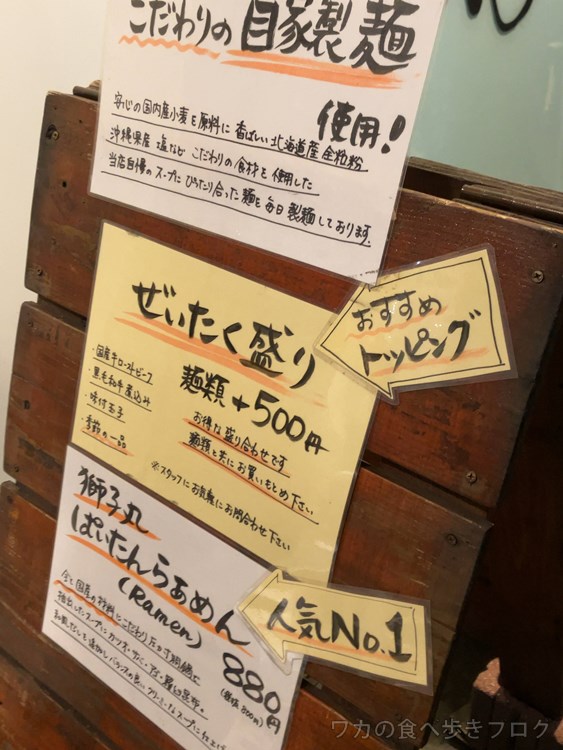 こだわりの自家製麺
使用！
安心の国内産小麦を原料に香ばしい北海道産全粒粉
沖縄県産塩など こだわりの食材を使用した
当店自慢のスープにぴったり合った麺を毎日製麺しております。
ぜいたく盛り
麺類+500円
・国産牛ローストビーフ
・黒毛和牛煮込み
・味付玉子
・季節の一品
お得な盛り合わせです
麺類と共にお買いもとめ下さい
※スタッフにお気軽にお問合わせ下さい
おすすめ
トッピング
獅子丸
ぱいたんらぁめん
(Ramen)
880円
(税抜800円)
全て国産の材料にこだわり
抽出したスープに
人気No.1
ワカの食べ歩きブログ